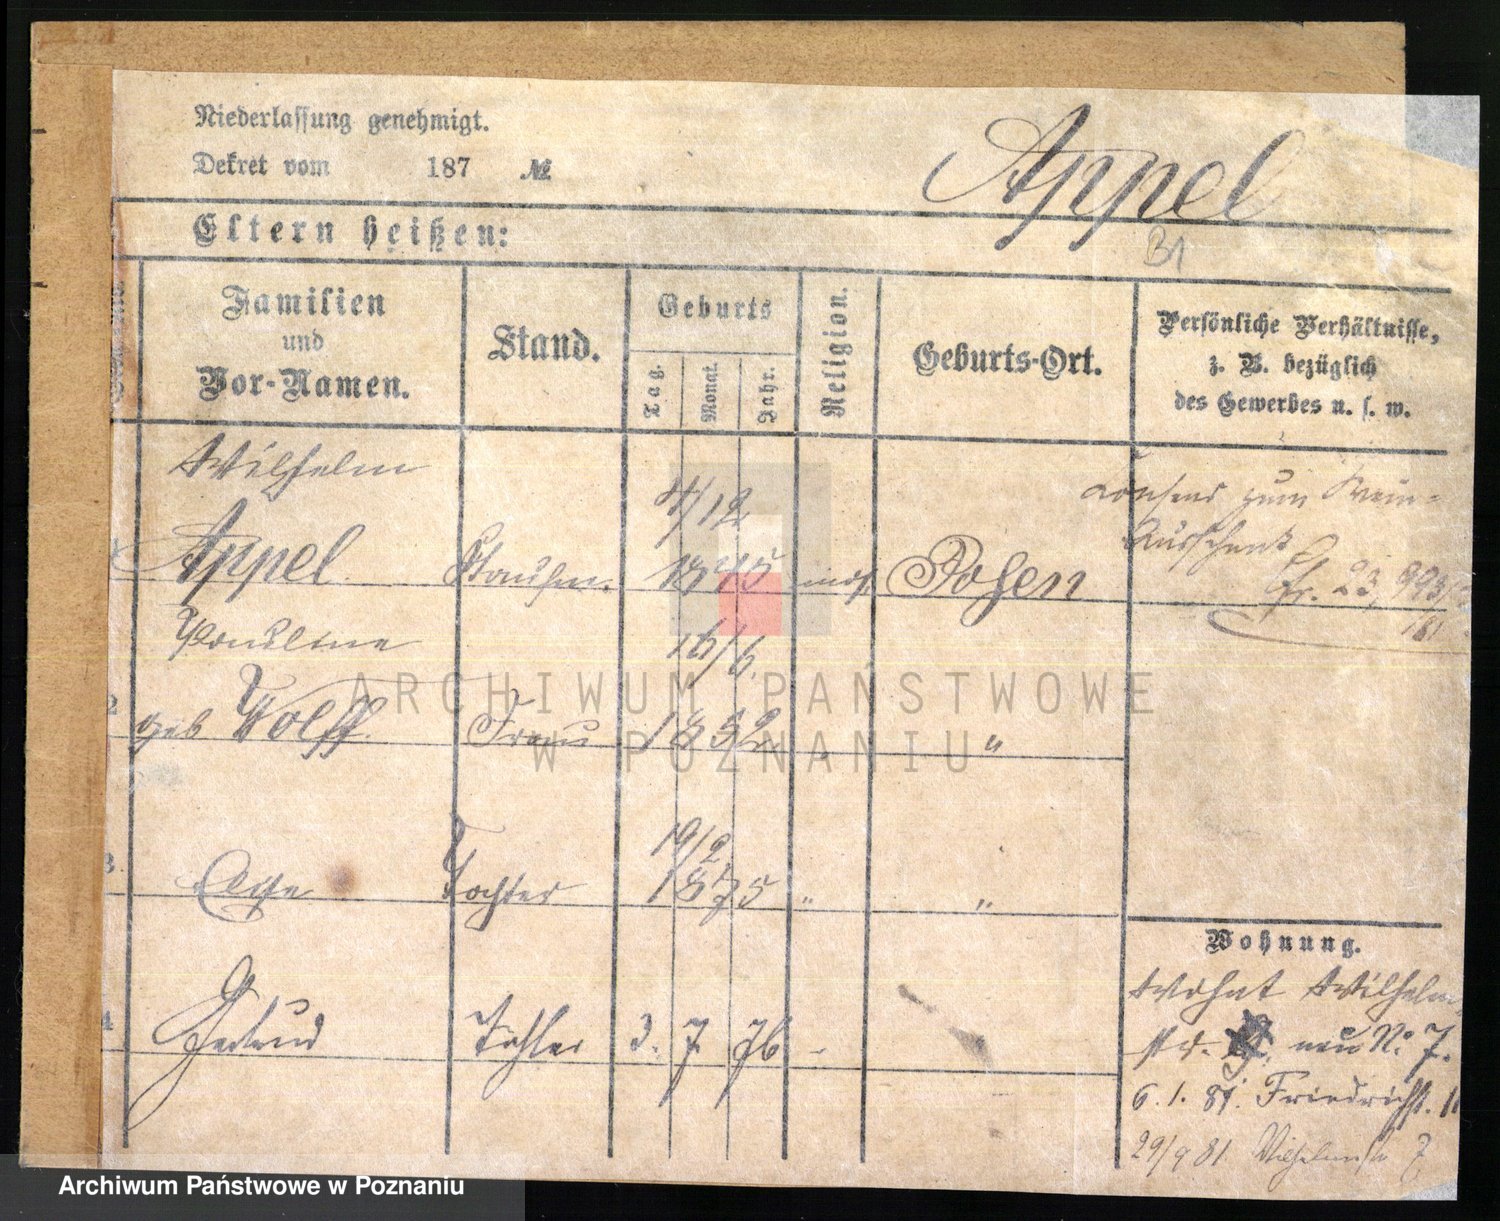 Niederlassung genehmigt.
Dekret vom 187 №
Appel
B1
Eltern heißen:
Familien und Vor-Namen.
Stand.
Geburts
Tag.
Monat.
Jahr.
Religion.
Geburts-Ort.
Persönliche Verhältnisse,
z. B. bezüglich
des Gewerbes u. s. w.
Wilhelm
4/12
Consens zum Wein-
Ausschank
Appel Kaufm. 18 5 mos. Posen
23,
Pauline
16/6.
2 geb Wolff. Frau 1852 " "
19/2
3. Tochter 1875 " "
4 Gertrud Tochter 3. 7. 76 "
Wohnung.
Wohnt Wilhelm
str. neu No. 7.
6.1.81. Friedrichst. 11
29/9 81. Wilhelmstr 7
ARCHIWUM PAŃSTWOWE
W POZNANIU
Archiwum Państwowe w Poznaniu